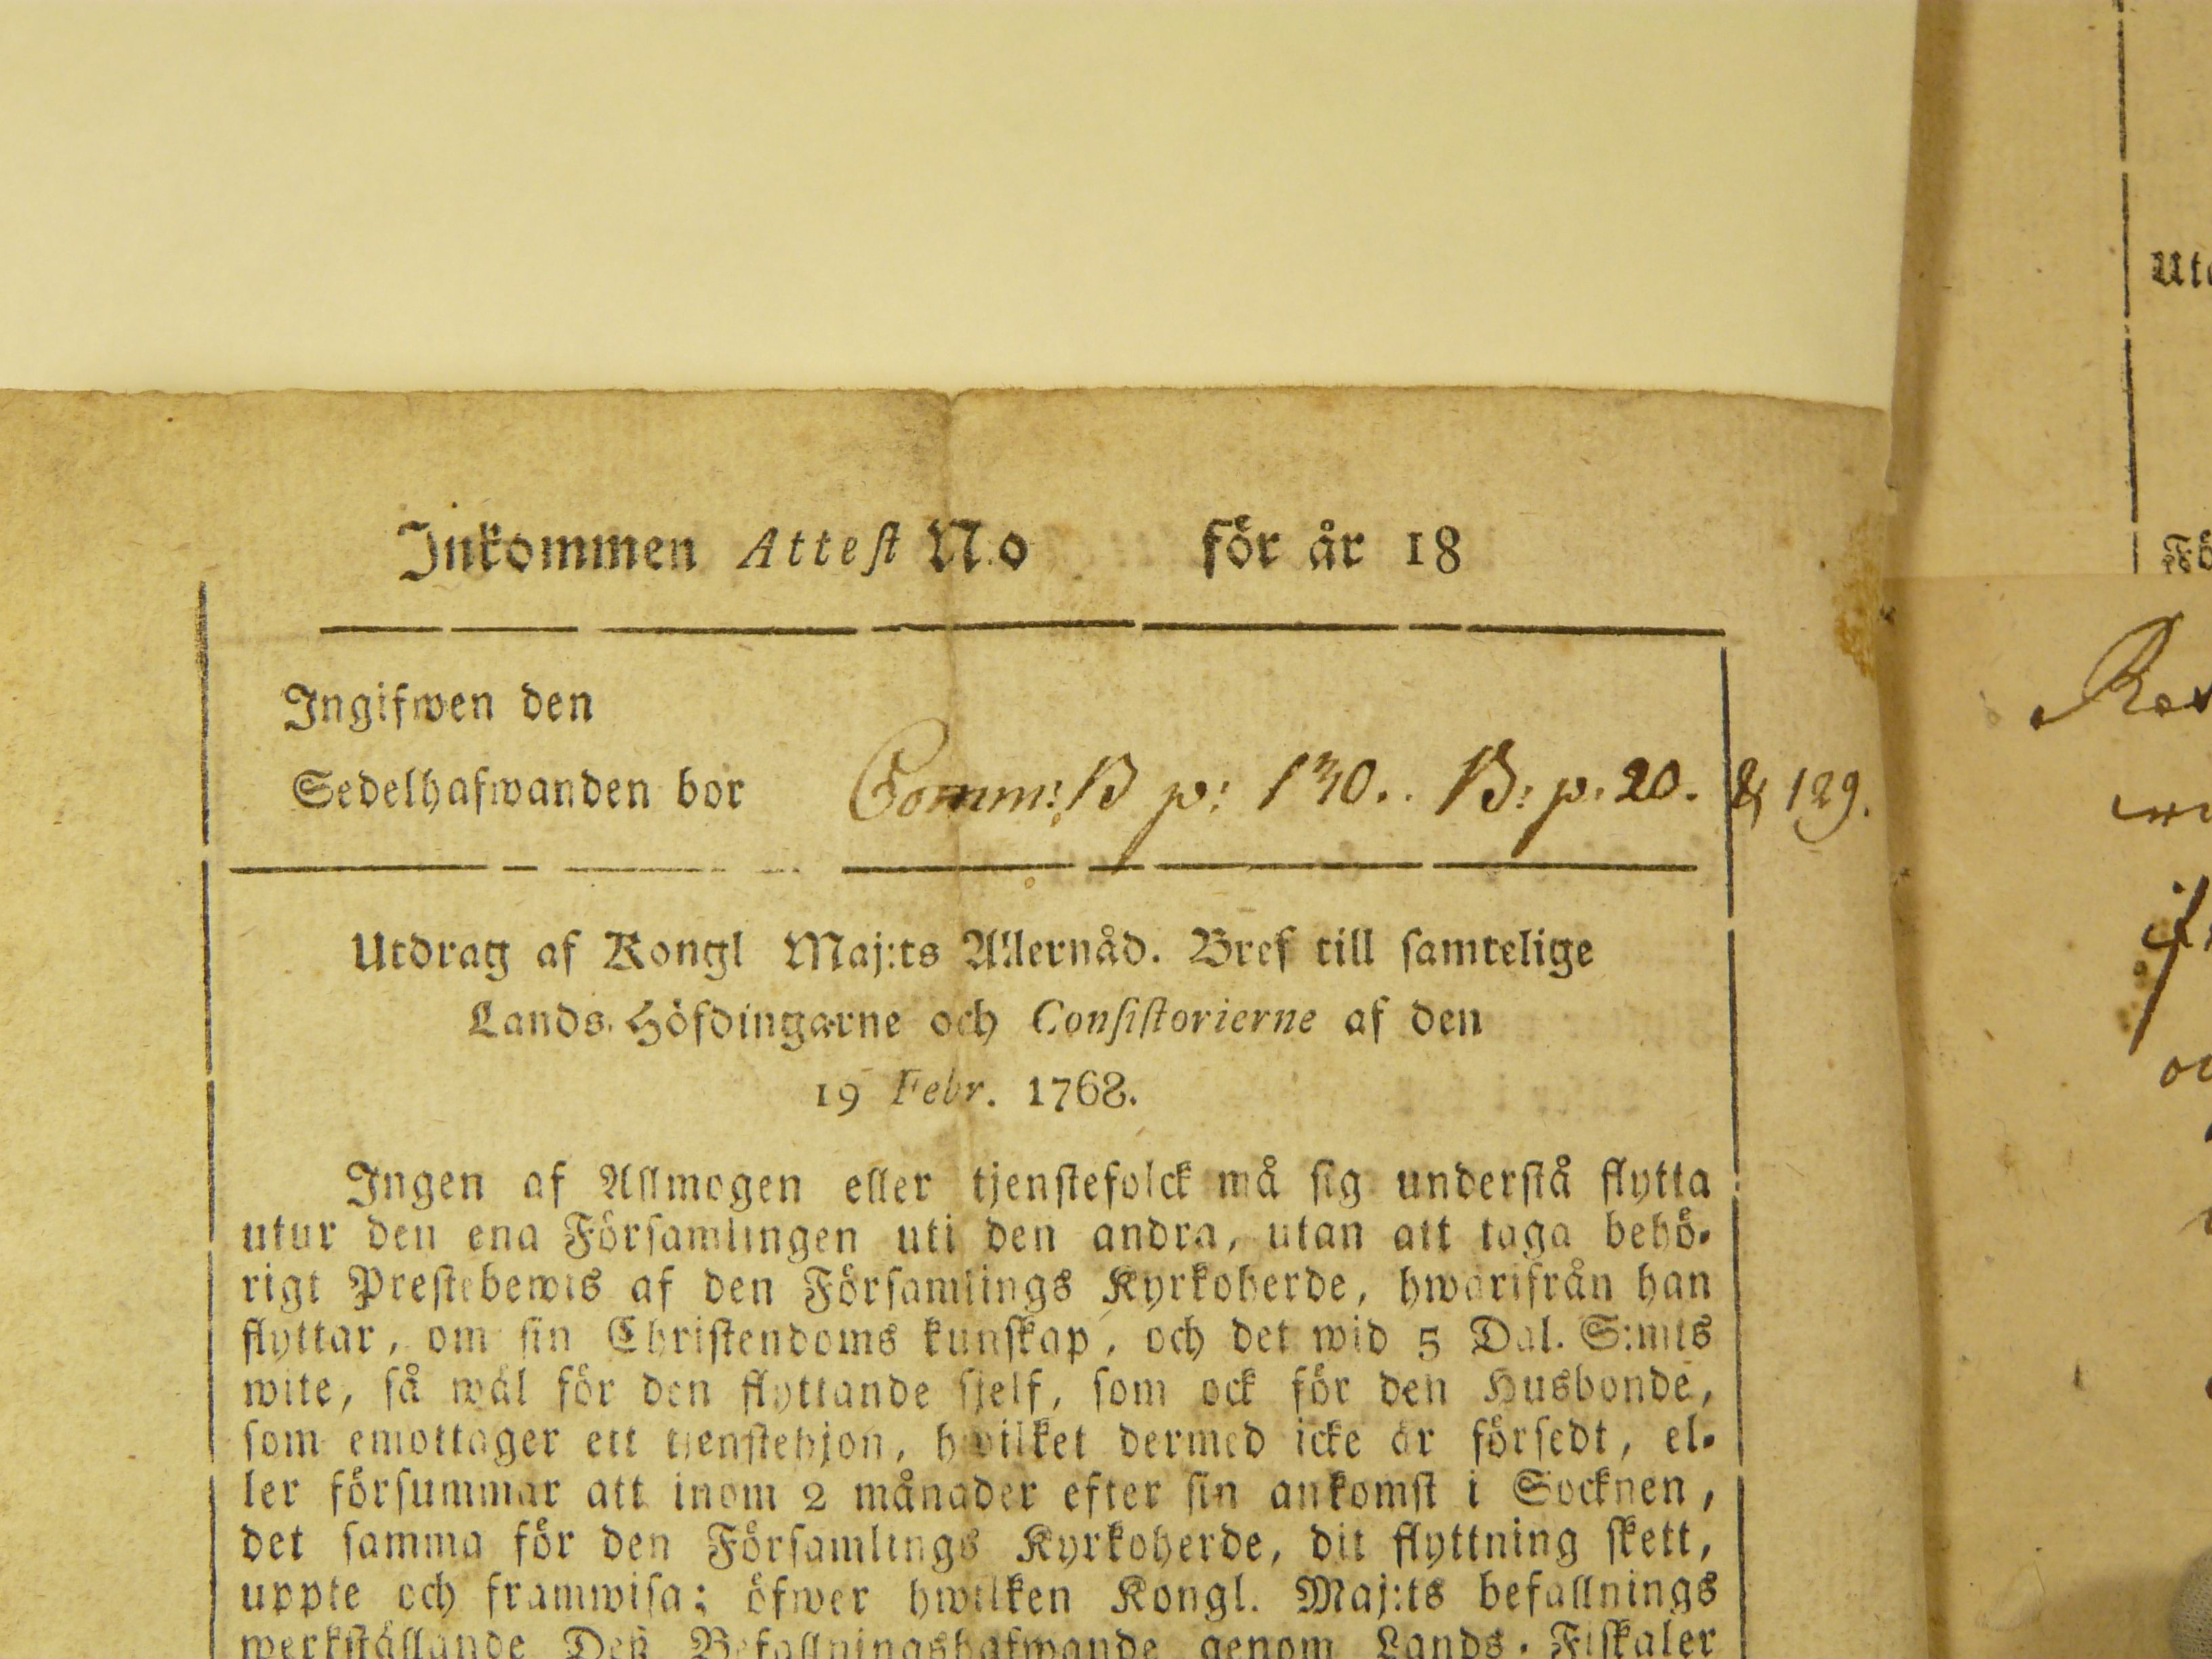 Inkommen Attest N.o för år 18
Ingifwen den
Sedelhafwanden bor Comm: B p: 130.. B: p. 20. & 129.
Utdrag af Kongl Maj:ts Allernåd. Bref till samtelige
Lands. Höfdingarne och Consistorierne af den
19 Febr. 1768.
Ingen af Allmogen eller tjenstefolck må sig understå flytta
utur den ena Församlingen uti den andra, utan att taga behö-
rigt Prestebewis af den Församlings Kyrkoherde, hwarifrån han
flyttar, om sin Christendoms kunskap, och det wid 5 Dal. S:mts
wite, så wäl för den flyttande sjelf, som ock för den Husbonde,
som emottager ett tjenstehjon, hwilket dermed icke är försedt, el-
ler försummar att inom 2 månader efter sin ankomst i Socknen,
det samma för den Församlings Kyrkoherde, dit flyttning skett,
uppte och framwisa; öfwer hwilken Kongl. Maj:ts befallnings
werkställande Deß Befallningshafwande genom Lands-Fiskaler
Ut
Fö